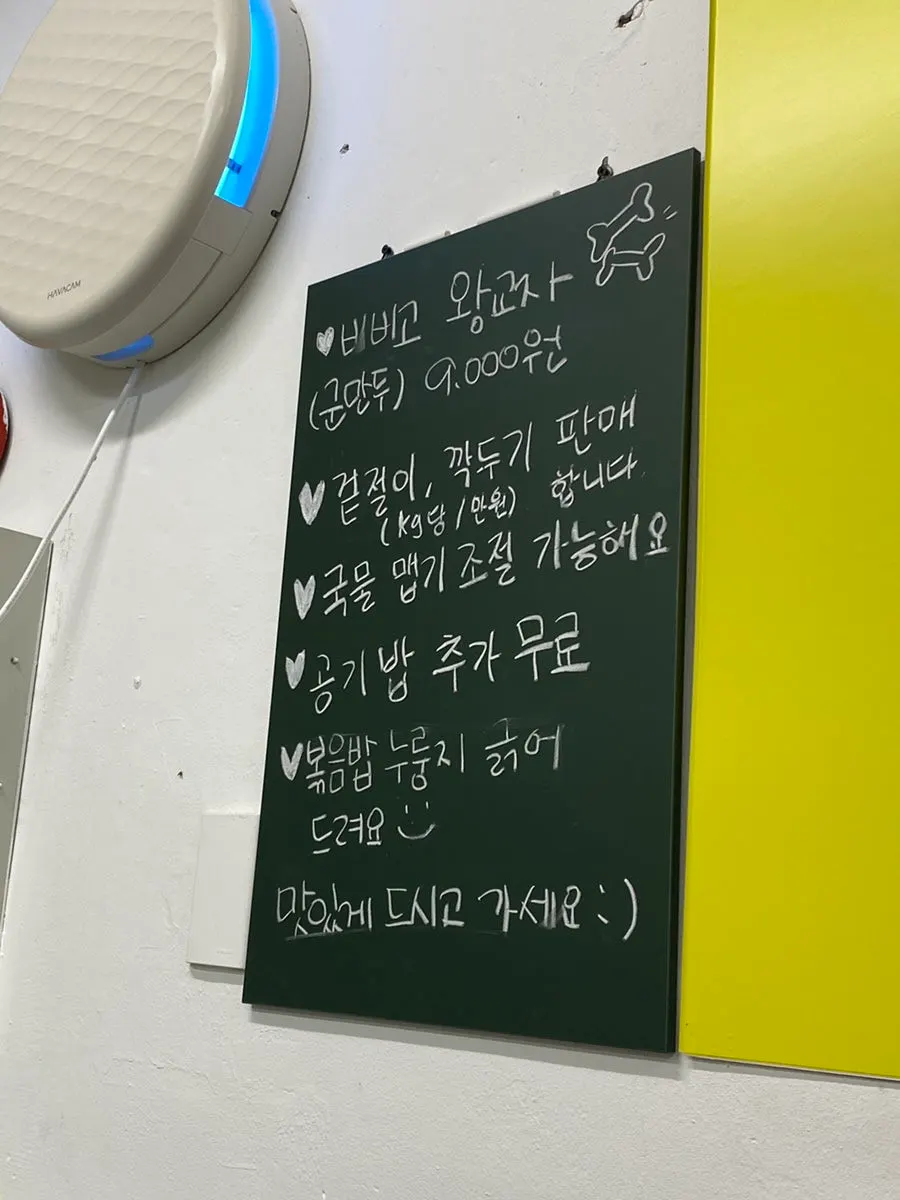 HAVACAM
♥비비고 왕교자
(군만두) 9.000원
♥겉절이, 깍두기 판매
(kg당 / 만원) 합니다.
♥국물 맵기 조절 가능해요
♥공기밥 추가 무료
♥볶음밥 누룽지 긁어
드려요 :)
맛있게 드시고 가세요 : )